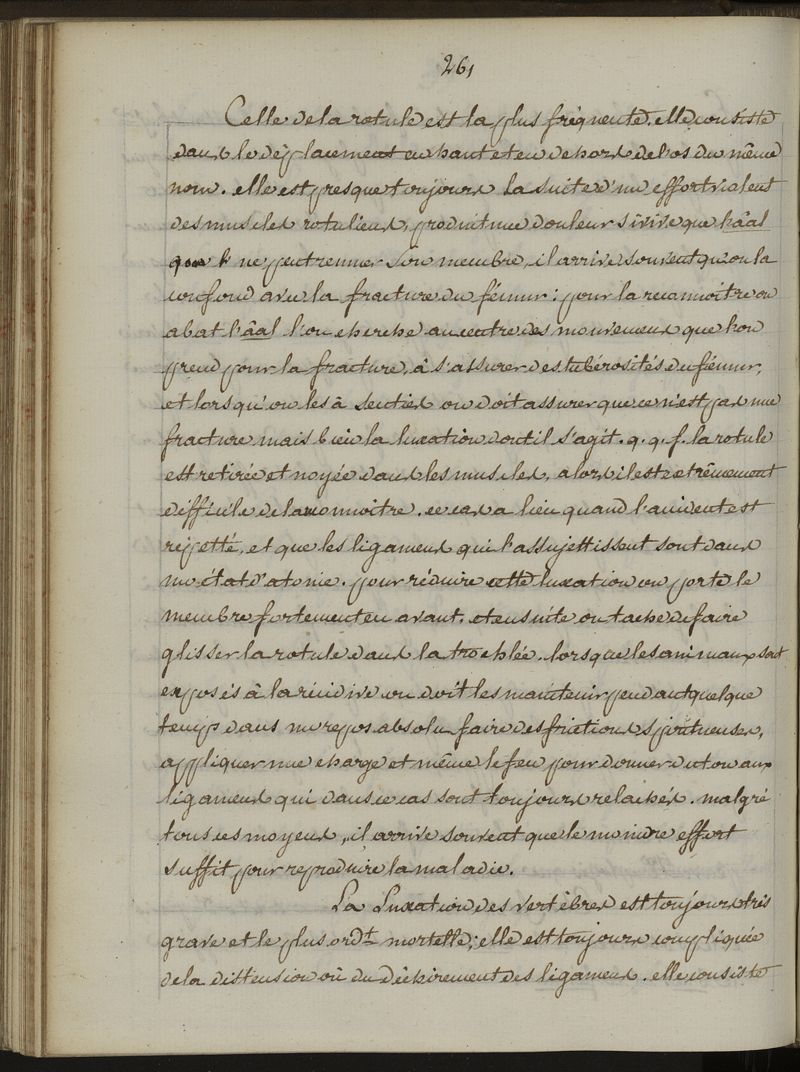 261
Celle de la rotule est la plus fréquente. elle consiste
dans le déplacement en haut et en dehors de l'os du même
nom. elle est presque toujours la suite d'un effort violent
des muscles rotuliens, produit une douleur si vive que l'âal
ne peut remuer son membre, il arrive souvent qu'on la
confond avec la fracture du fémur: pour la reconnoitre on
abat l'âal l'on cherche au centre des mouvemens que l'on
prend pour la fracture, à s'assurer des tubérosités du fémur,
et lorsqu'on les à senties on doit assurer que ce n'est pas une
fracture mais bien la luxation dont il s'agit. q.q.f. la rotule
est retirée et noyée dans les muscles, alors il est extrêmement
difficile de la reconnoitre. ce cas a lieu quand l'accident est
répetté, et que les ligamens qui l'assujettissent sont dans
un état d'atonie. pour réduire cette luxation on porte le
membre fortement en avant, et ensuite on tache de faire
glisser la rotule dans la trochlée. lorsque les animaux sont
exposés à la récidive on doit les maintenir pendant quelque
temps dans un repos absolu faire des frictions spiritueuses,
appliquer une charge et même le feu pour donner du ton aux
ligamens qui dans ce cas sont toujours relachés. malgré
tous ces moyens, il arrive souvent que le moindre effort
suffit pour reproduire la maladie.
La Luxation des vertèbres est toujours très
grave et le plus ordt mortelle; elle est toujours compliquée
de la distension où du déchirement des ligamens. elle consiste